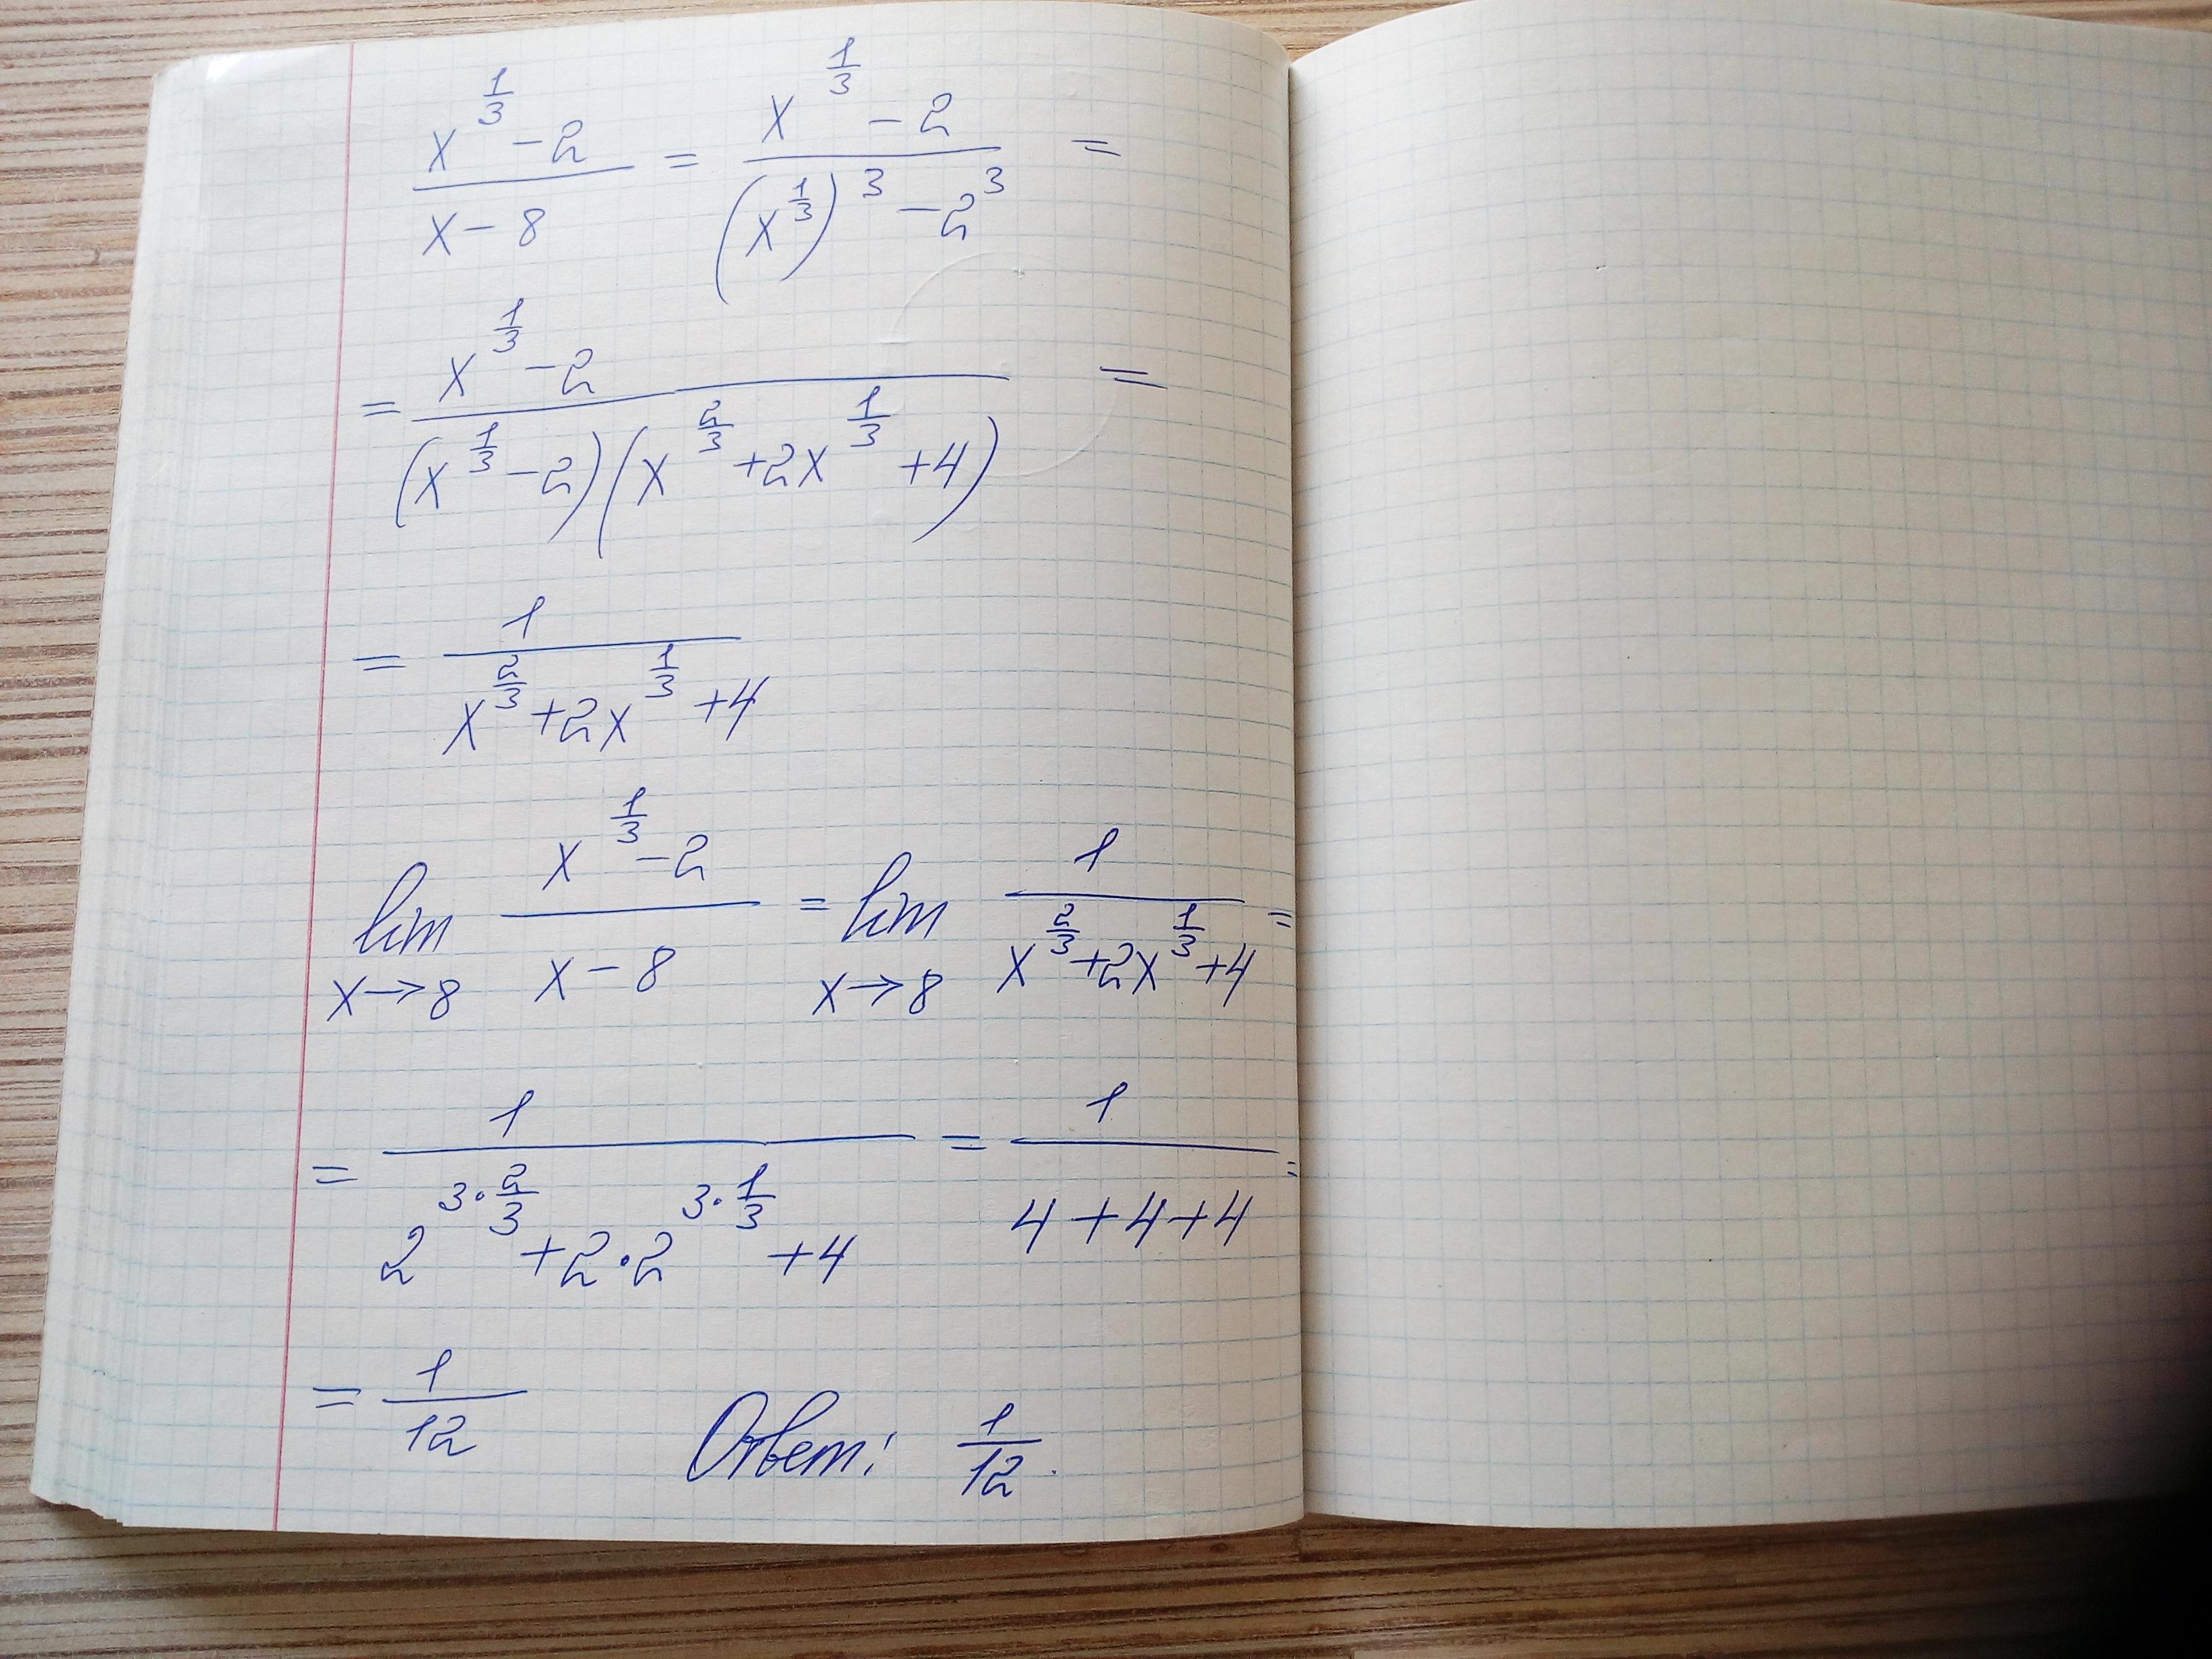 \frac{x^{\frac{1}{3}}-2}{x-8} = \frac{x^{\frac{1}{3}}-2}{(x^{\frac{1}{3}})^3-2^3} =
= \frac{x^{\frac{1}{3}}-2}{(x^{\frac{1}{3}}-2)(x^{\frac{2}{3}}+2x^{\frac{1}{3}}+4)} =
= \frac{1}{x^{\frac{2}{3}}+2x^{\frac{1}{3}}+4}
\lim_{x \to 8} \frac{x^{\frac{1}{3}}-2}{x-8} = \lim_{x \to 8} \frac{1}{x^{\frac{2}{3}}+2x^{\frac{1}{3}}+4} =
= \frac{1}{2^{3 \cdot \frac{2}{3}}+2 \cdot 2^{3 \cdot \frac{1}{3}}+4} = \frac{1}{4+4+4} =
= \frac{1}{12} Ответ: \frac{1}{12}.